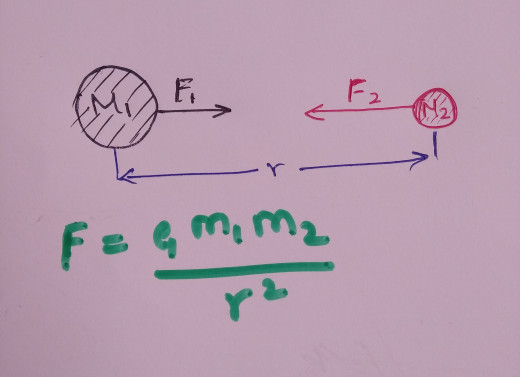 M1 F1 F2 M2
r
F = G m1 m2
r2